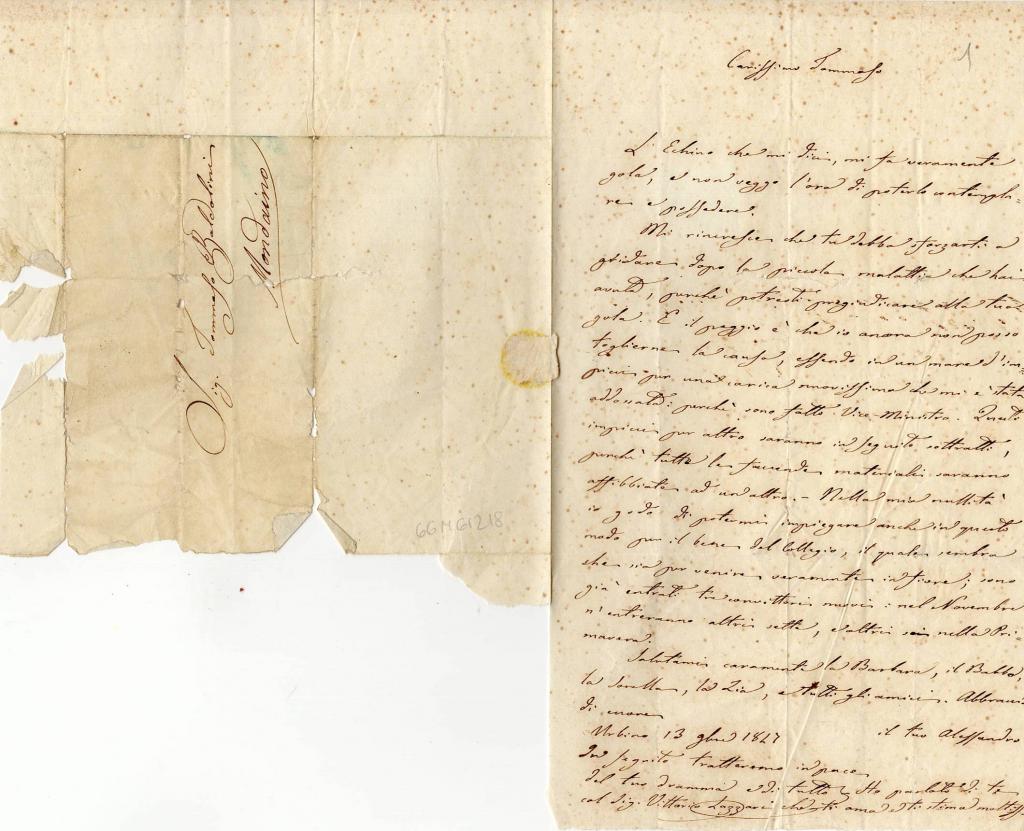 Sig. Tommaso Baldolini
Mondaino
GGMG1218
1
Carissimo Tommaso
L'Echino che mi dici, mi fa veramente
gola, e non veggo l'ora di poterlo contempla=
re e possedere.
Mi rincresce che tu debba sforzarti a
gridare dopo la piccola malattia che hai
avuta, perchè potresti pregiudicare alla tua
gola. E il peggio è che io ancora non posso
toglierne la causa, essendo in un mare d'im=
picci per una carica nuovissima che mi è stata
addossata: perchè sono fatto Vice-Ministro. Questi
impicci per altro saranno in seguito sottratti,
perchè tutte le faccende materiali saranno
affibbiate ad un altro. - Nella mia nullità
io godo di potermi impiegare anche in questo
modo per il bene del Collegio, il quale sembra
che sia per venire veramente in fiore; sono
già entrati tre convittori nuovi: nel Novembre
n'entreranno altri sette, e altri sei nella Pri=
mavera.
Salutami caramente la Barbara, il Babbo,
la Sorella, la Zia, e tutti gli amici. Abbracci
di cuore
Urbino 13 9bre 1847 il tuo Alessandro
In seguito tratteremo in pace
del tuo dramma e di tutto. Ho parlato di te
col Sig. Vittorio che ti ama e ti stima moltiss